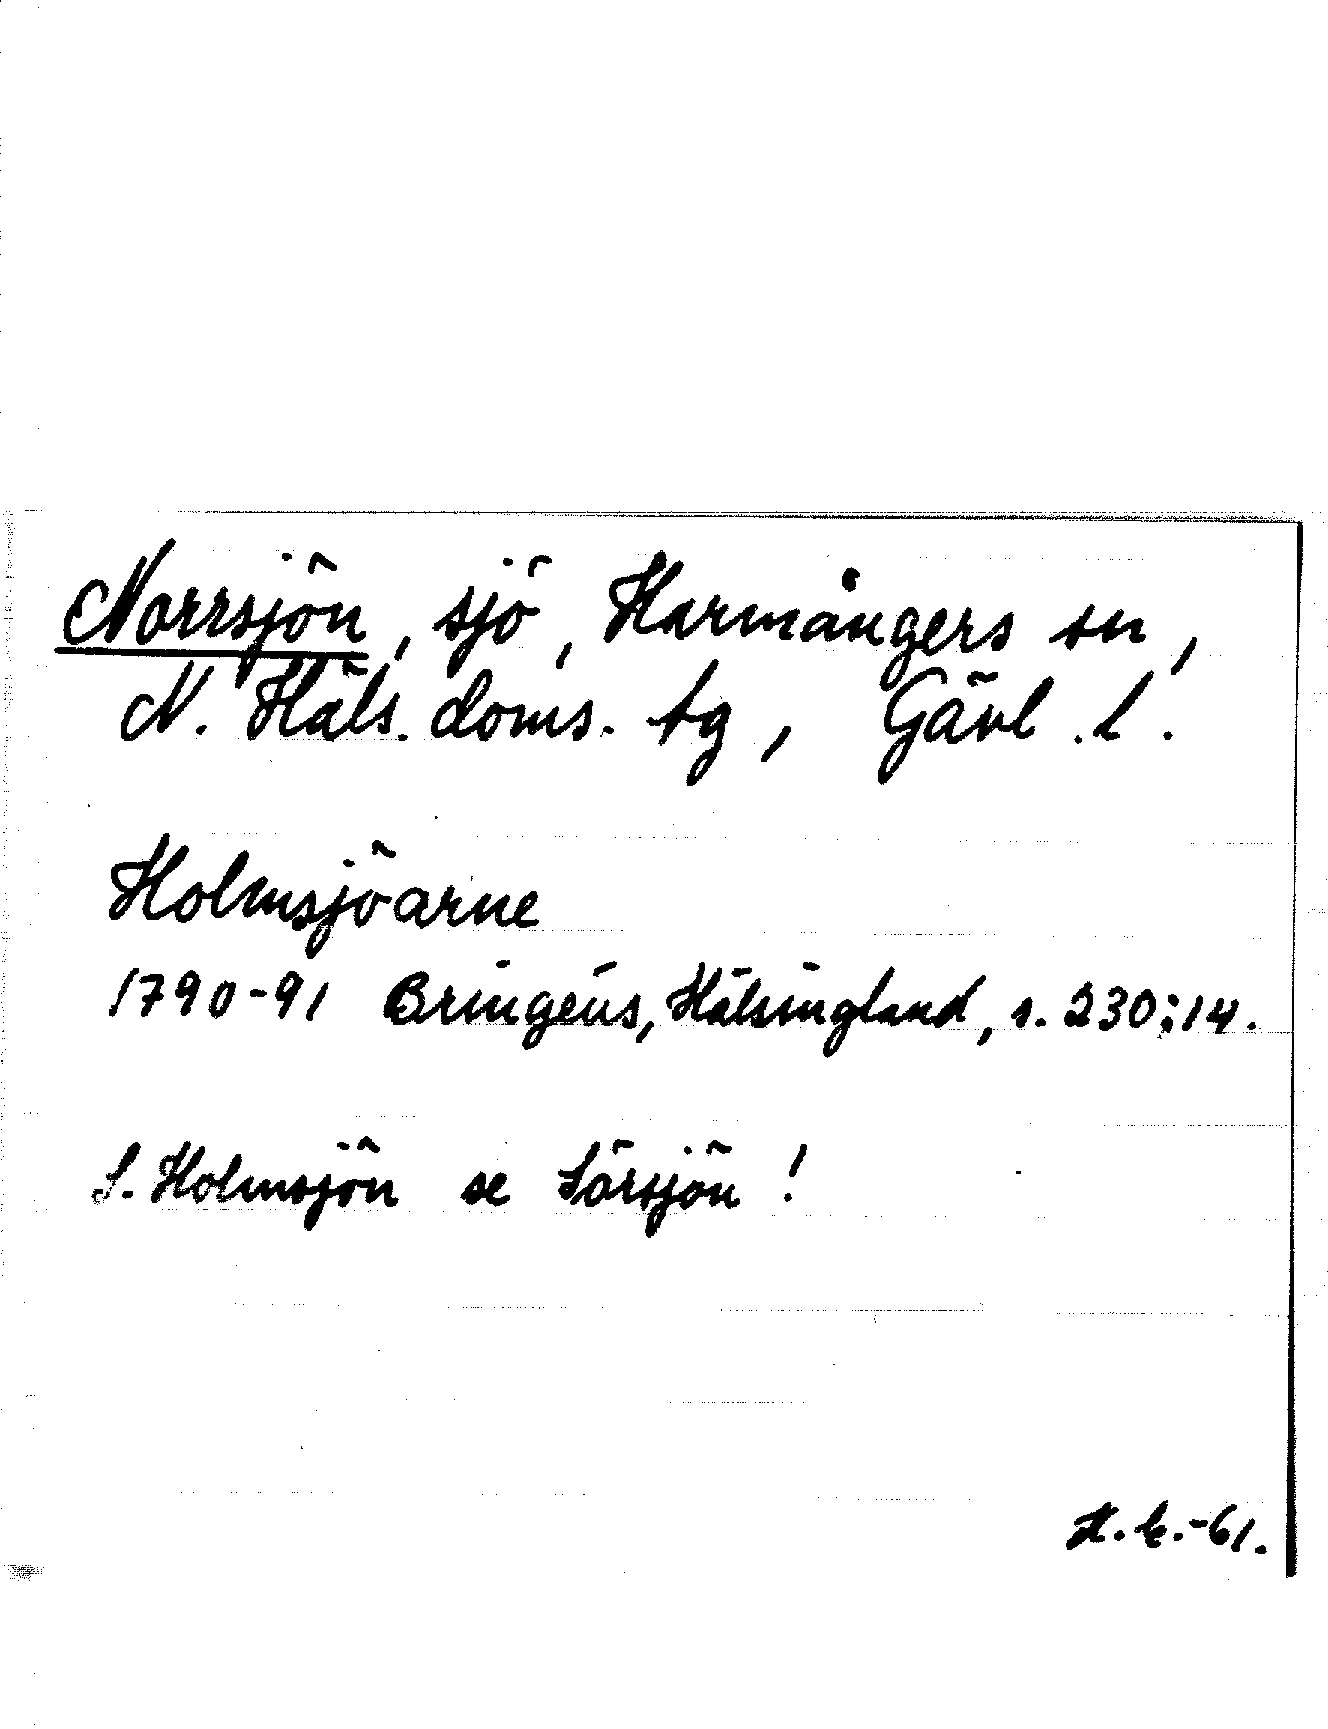 Norrsjön, sjö, Harmångers sn,
N. Häls. doms. tg, Gävl. l.
Holmsjöarne
1790-91 Bringéus, Hälsingland, s. 230:14.
S. Holmsjön se Sörsjön!
-61.